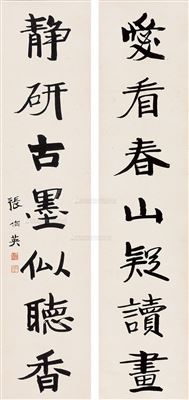 愛看春山疑讀畫
静研古墨似聽香
張伯英